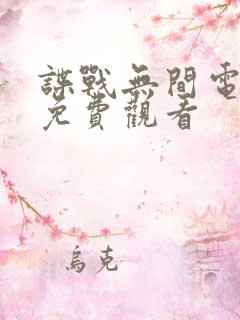 諜戰無間電
免費觀看
烏克